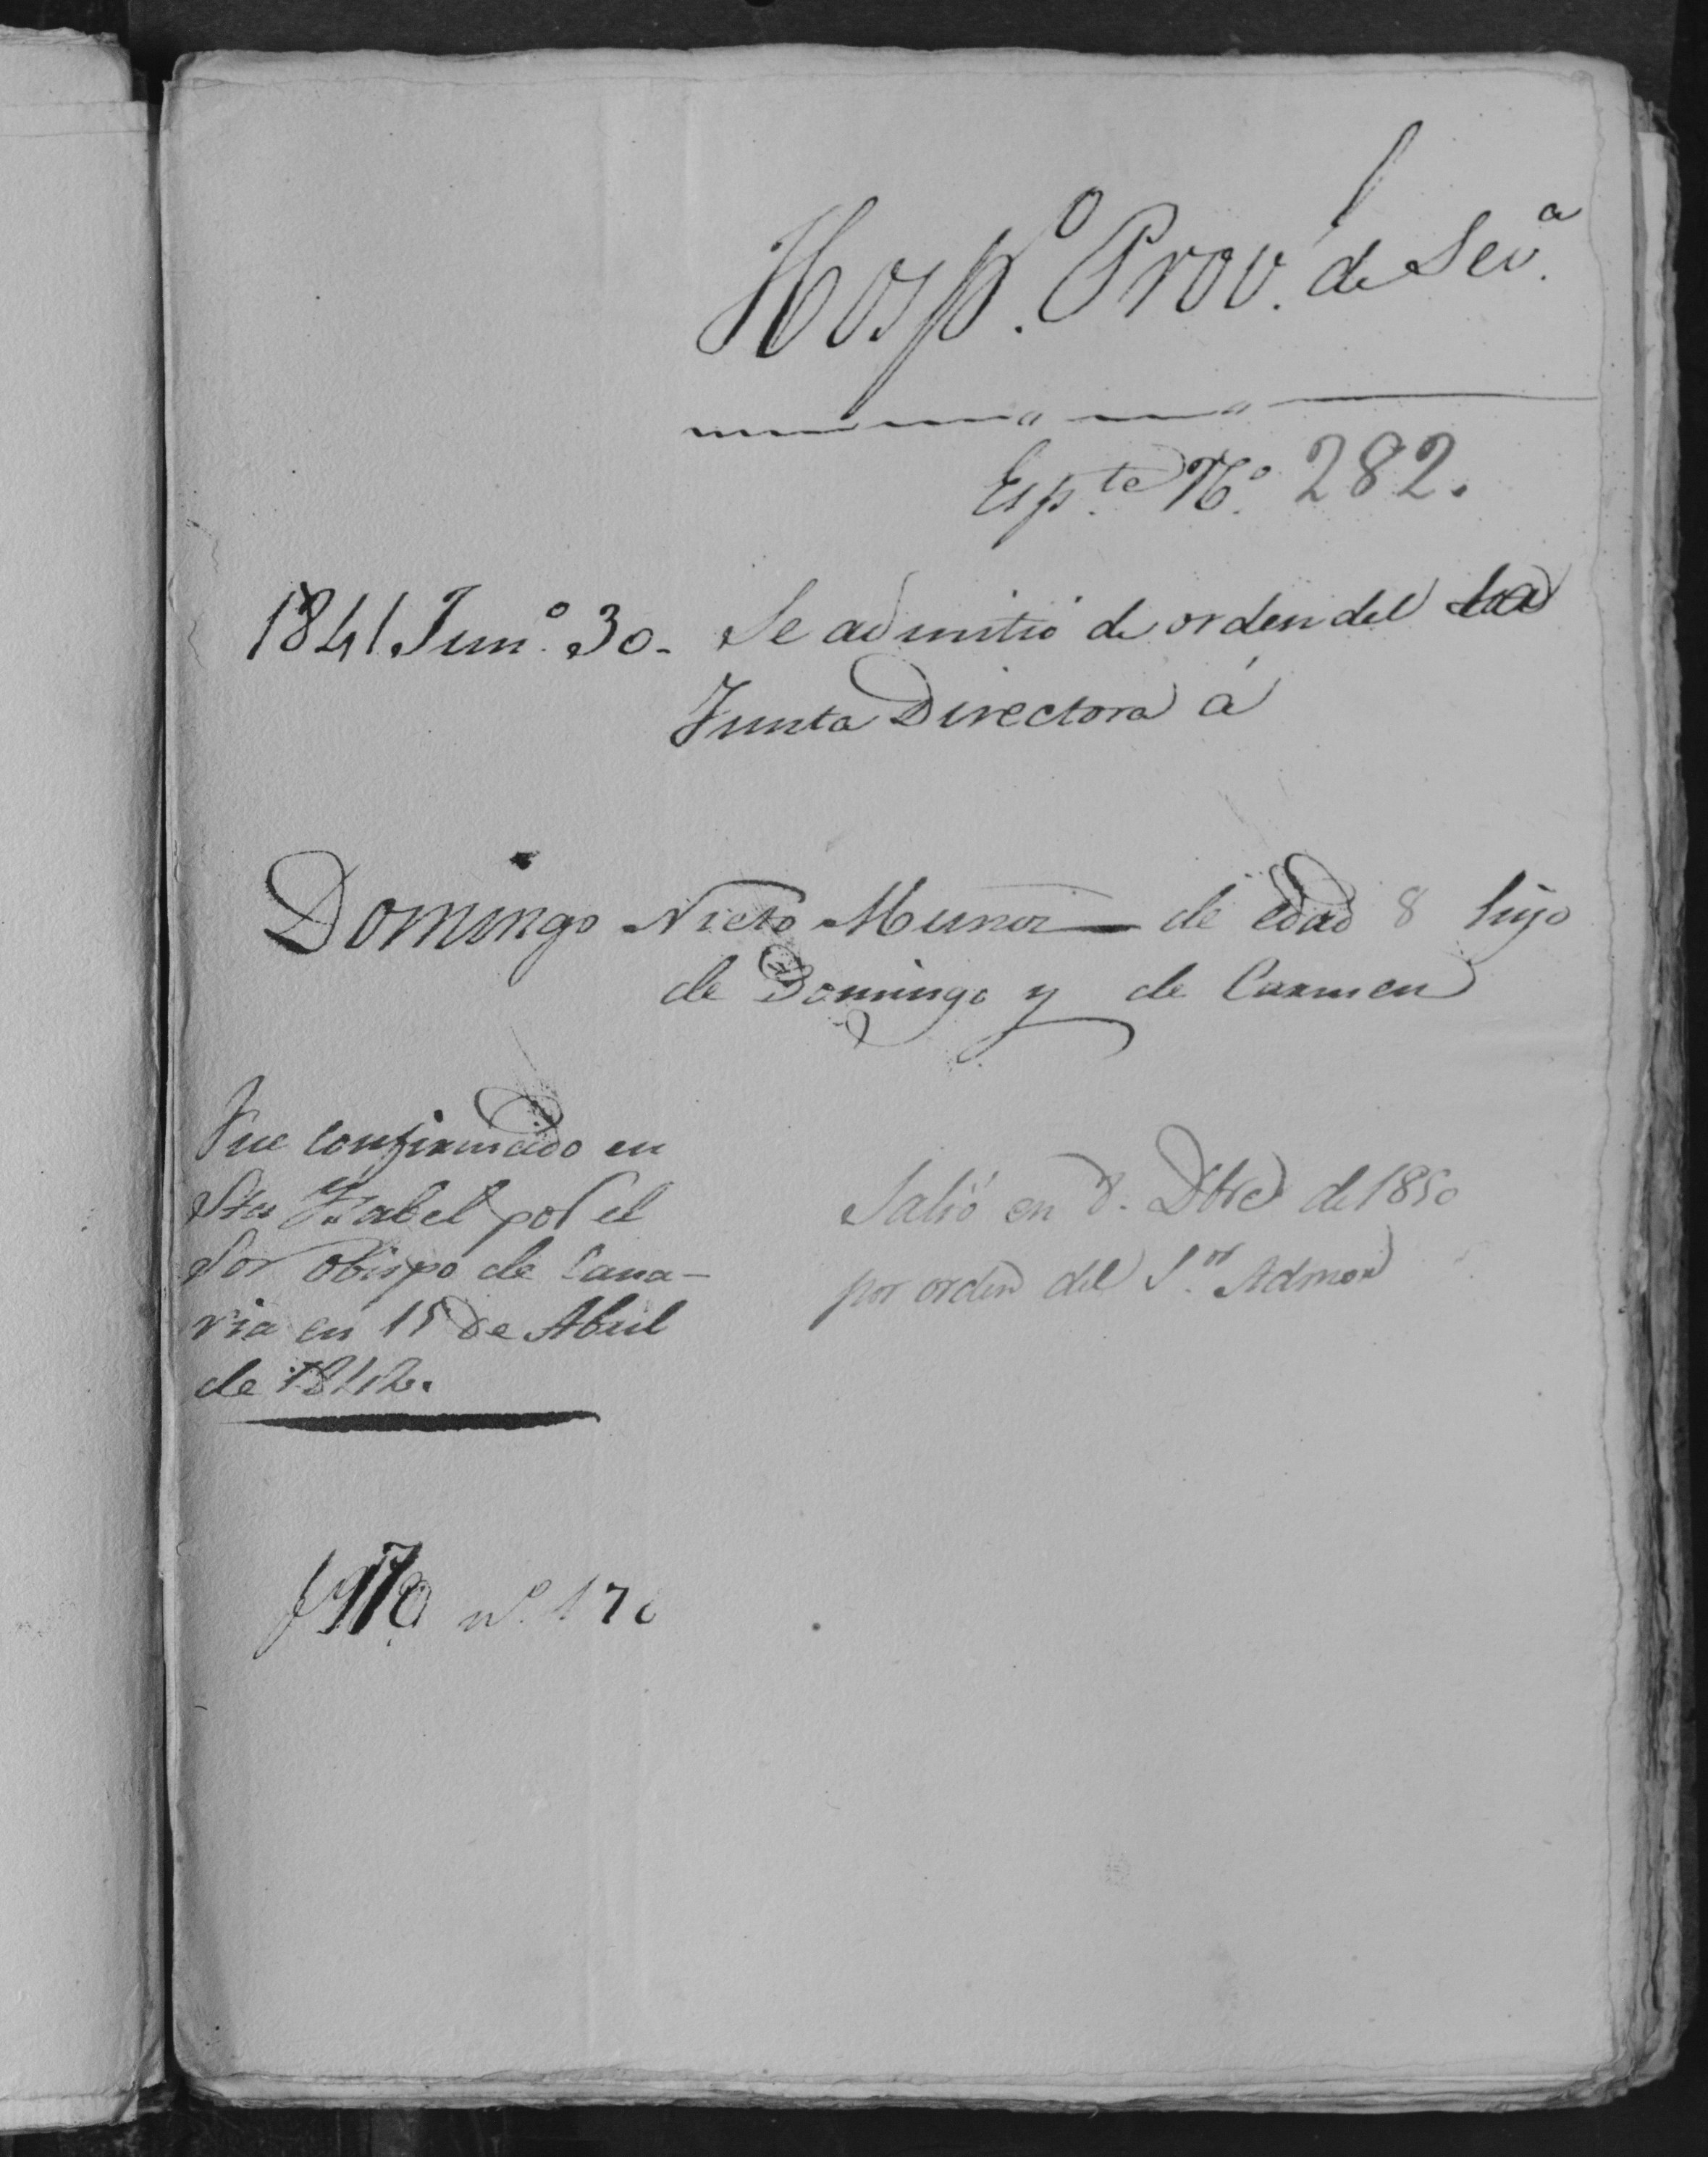 Hosp.º Prov.l de Sev.a
Esp.te Nº 282.
1841 Jun.º 30. Se admitió de orden del la
Junta Directora á
Domingo Nieto Muñoz de edad 8 hijo
de Domingo y de Carmen
Fue confirmado en
Sta Ysabel por el
Sor Obispo de Cana-
ria en 15 de Abril
de 1842.
Salió en 8. Dbre de 1850
por orden del S.or Admor
nº 170